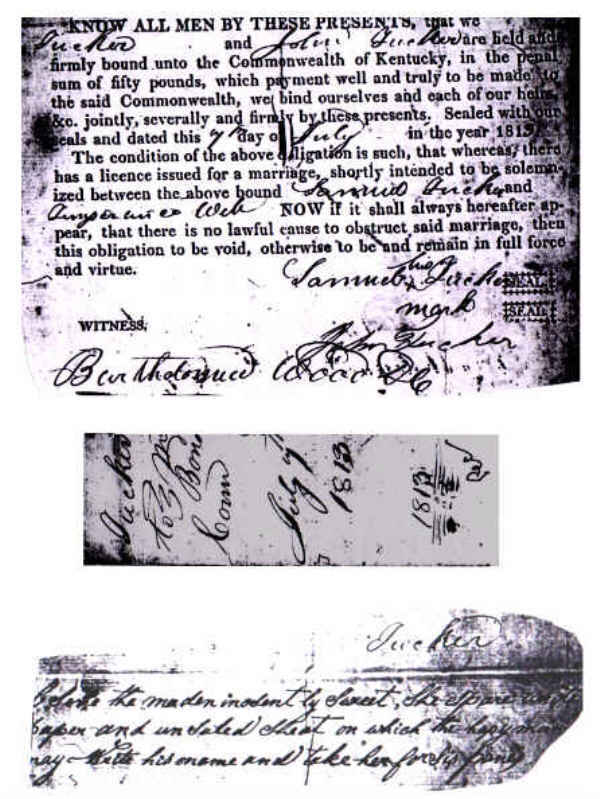 KNOW ALL MEN BY THESE PRESENTS, that we
Tucker and John Tucker are held and
firmly bound unto the Commonwealth of Kentucky, in the penal
sum of fifty pounds, which payment well and truly to be made to
the said Commonwealth, we bind ourselves and each of our heirs,
&c. jointly, severally and firmly by these presents. Sealed with our
seals and dated this 7th day of July in the year 1813.
The condition of the above obligation is such, that whereas, there
has a licence issued for a marriage, shortly intended to be solemn-
ized between the above bound Samuel Tucker and
NOW if it shall always hereafter ap-
pear, that there is no lawful cause to obstruct said marriage, then
this obligation to be void, otherwise to be and remain in full force
and virtue.
Samuel his Tucker SEAL.
mark
SEAL.
WITNESS,
John Tucker
Bartholomew Wood DC
Tucker
to
Bond
Com
July 7
1813
1813
Tucker
the maden inodently Sweet, She
paper and unsaled Sheat on which the happy man
may his name and take her for